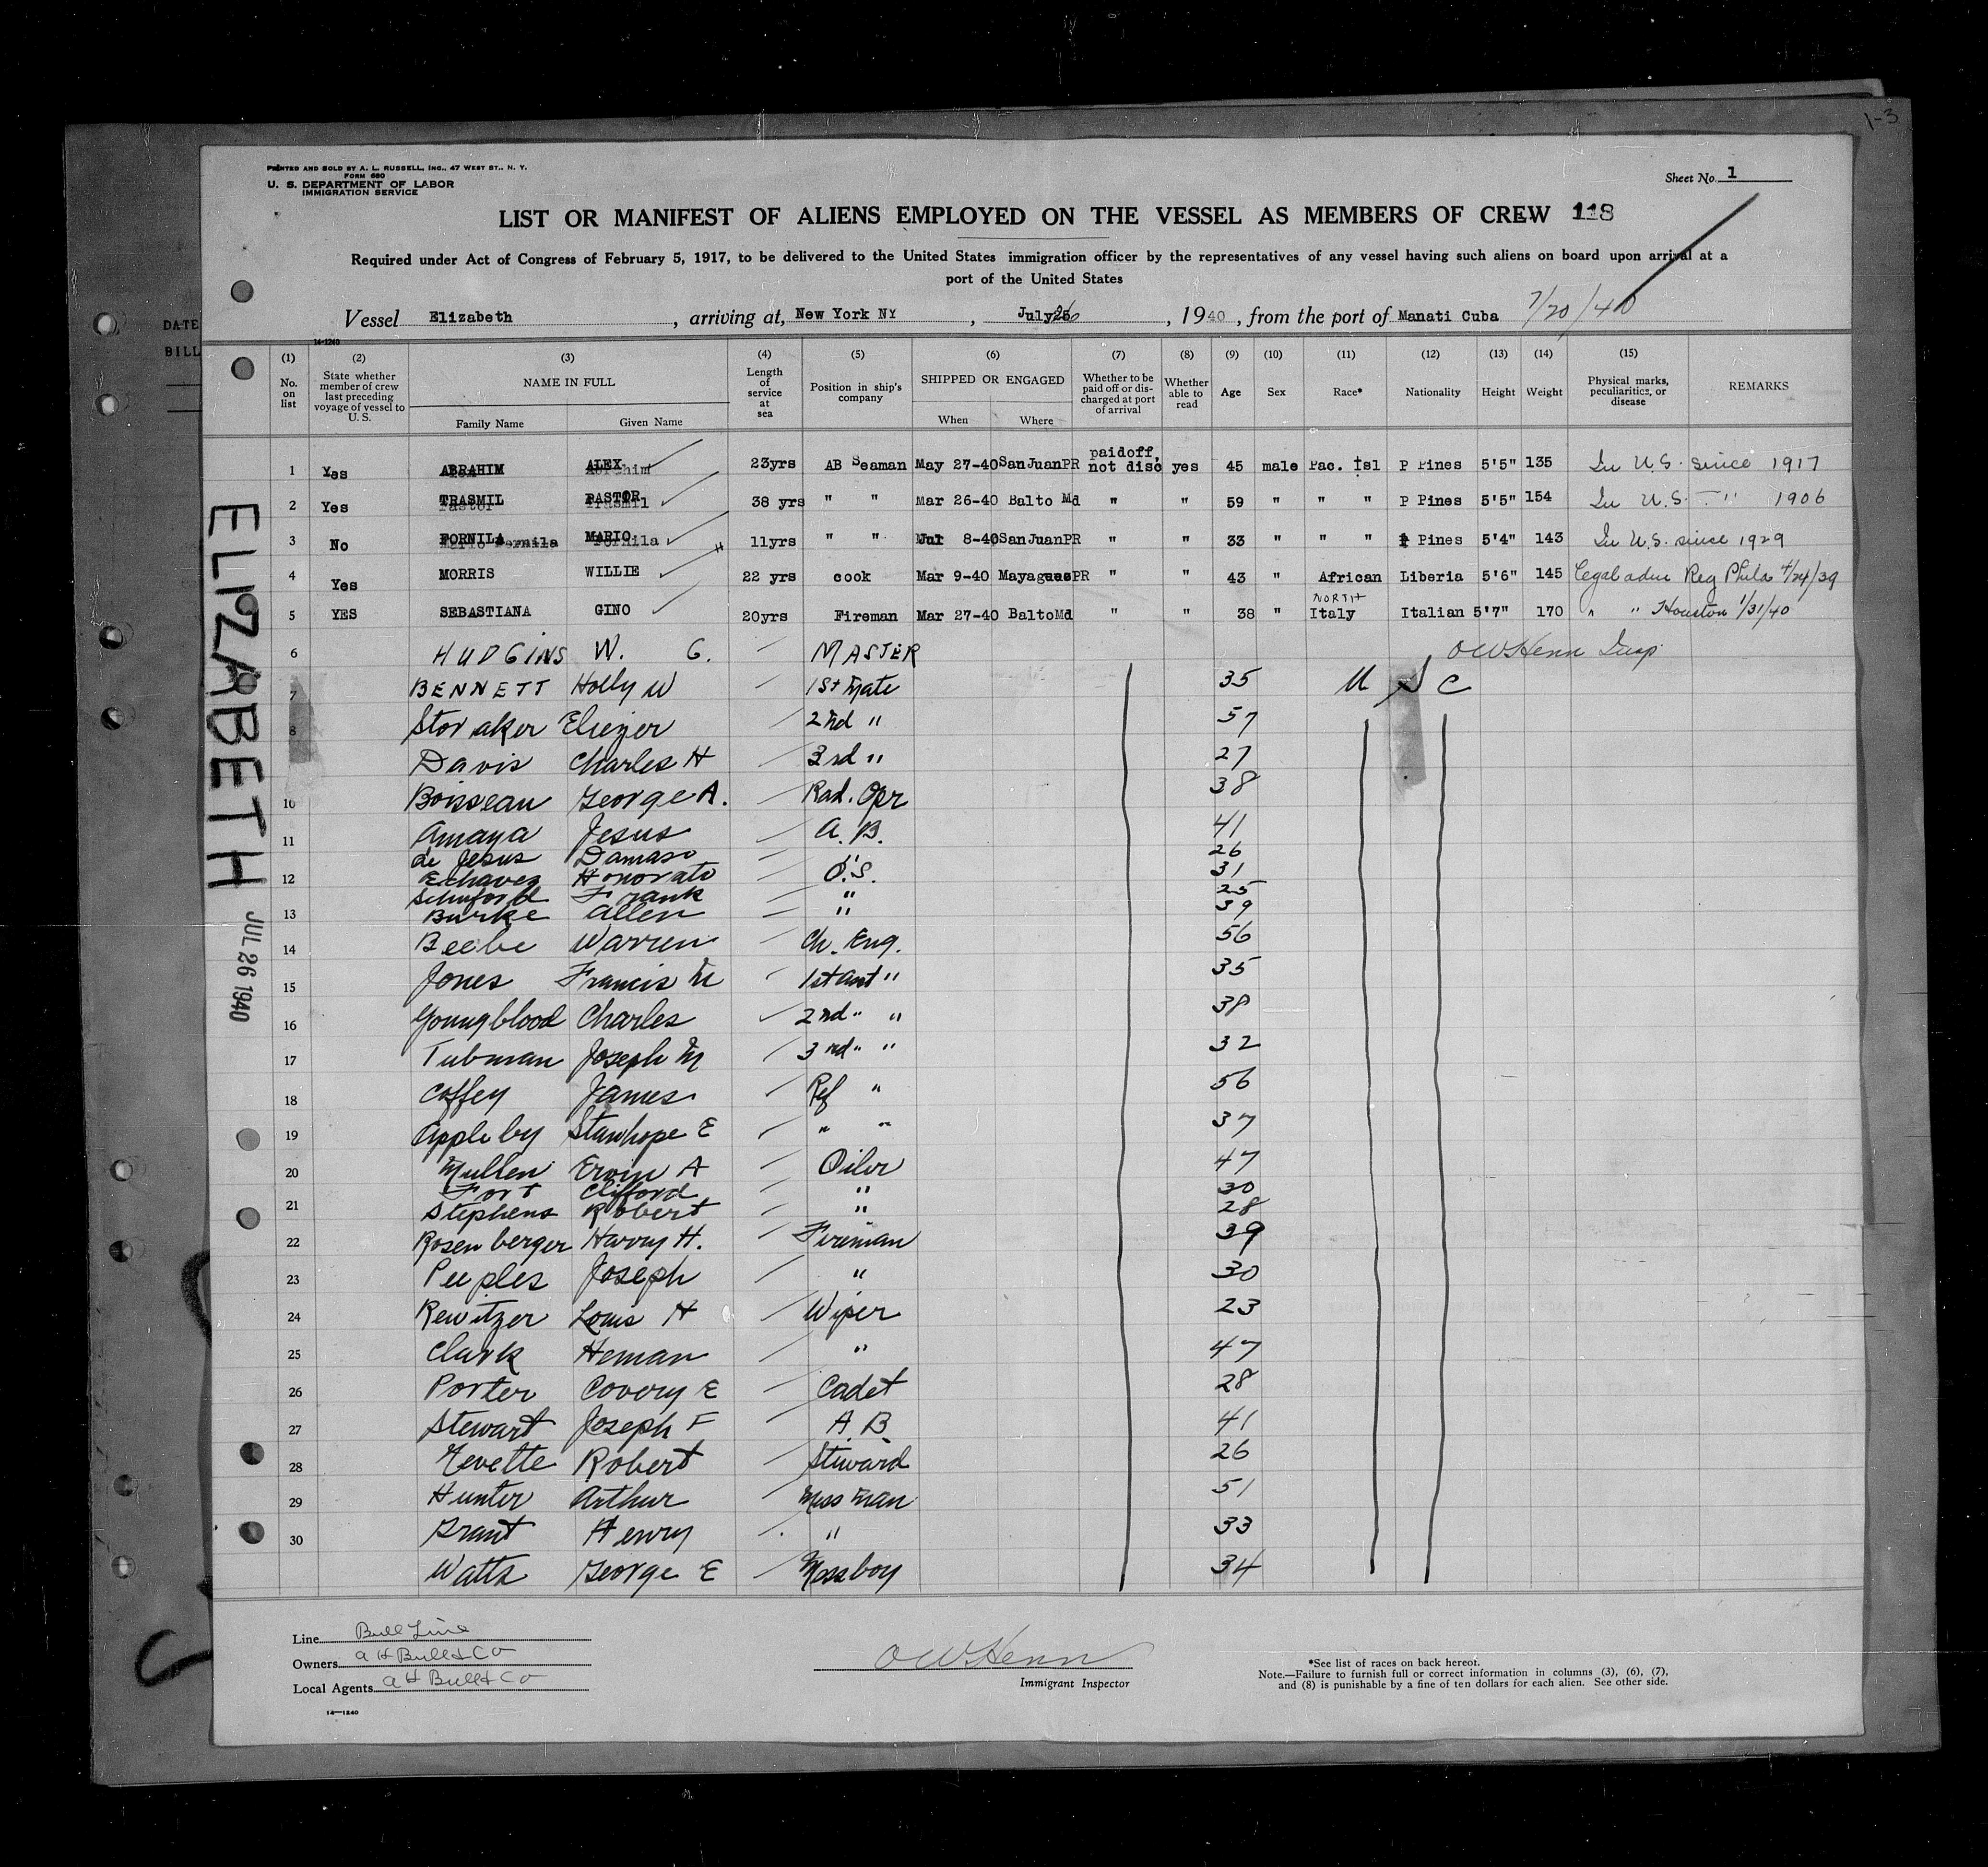 1-3
PRINTED AND SOLD BY A. L. RUSSELL, INC., 47 WEST ST., N. Y.
FORM 680
U. S. DEPARTMENT OF LABOR
IMMIGRATION SERVICE
Sheet No. 1
LIST OR MANIFEST OF ALIENS EMPLOYED ON THE VESSEL AS MEMBERS OF CREW 118
Required under Act of Congress of February 5, 1917, to be delivered to the United States immigration officer by the representatives of any vessel having such aliens on board upon arrival at a
port of the United States
DATE
BILL
Vessel Elizabeth, arriving at, New York NY, July 26, 1940, from the port of Manati Cuba 7/20/40
14-1240
(1) No. on list
(2) State whether member of crew last preceding voyage of vessel to U. S.
(3) NAME IN FULL Family Name Given Name
(4) Length of service at sea
(5) Position in ship's company
(6) SHIPPED OR ENGAGED When Where
(7) Whether to be paid off or discharged at port of arrival
(8) Whether able to read
(9) Age
(10) Sex
(11) Race*
(12) Nationality
(13) Height
(14) Weight
(15) Physical marks, peculiarities, or disease
REMARKS
1 Yes ABRAHIM ALEX 23yrs AB Seaman May 27-40 San Juan PR paid off, not disc yes 45 male Pac. Isl P Pines 5'5" 135 In U.S. since 1917
2 Yes TRASMIL PASTOR 38 yrs " " Mar 26-40 Balto Md " " 59 " " " P Pines 5'5" 154 In U.S. — " 1906
3 No FORNILA MARIO 11yrs " " Jul 8-40 San Juan PR " " 33 " " " P Pines 5'4" 143 In U.S. since 1929
4 Yes MORRIS WILLIE 22 yrs cook Mar 9-40 Mayaguez PR " " 43 " African Liberia 5'6" 145 Legal adm Reg Phila 4/24/39
5 YES SEBASTIANA GINO 20yrs Fireman Mar 27-40 Balto Md " " 38 " NORTH Italy Italian 5'7" 170 " " Houston 1/31/40
6 HUDGINS W. G. MASTER OW Henn Insp.
7 BENNETT Holly W 1st Mate 35 U S C
8 Storaker Eliezer 2nd " 57
Davis Charles H 3rd " 27
10 Boisseau George A. Rad. Opr 38
11 Amaya Jesus A. B. 41
de Jesus Damaso " 26
12 Echavez Honorato O.S. 31
Frank " 25
13 Burke Allen " 39
14 Beebe Warren Ch. Eng. 56
15 Jones Francis M 1st Asst " 35
16 Youngblood Charles 2nd " " 38
17 Tubman Joseph M 3rd " " 32
18 Coffey James Ref " 56
19 Appleby Stanhope E " " 37
20 Mullen Ervin A Oiler 47
Fort Clifford " 30
21 Stephens Robert " 28
22 Rosenberger Harry H. Fireman 39
23 Peeples Joseph " 30
24 Rewitzer Louis H Wiper 23
25 Clark Heman " 47
26 Porter Covery E Cadet 28
27 Stewart Joseph F A.B. 41
28 Robert Steward 26
29 Hunter Arthur Mess man 51
30 Grant Henry " 33
Watts George E Messboy 34
ELIZABETH
JUL 26 1940
Line Bull Line
Owners A H Bull & Co
Local Agents A H Bull & Co
14—1240
OW Henn
Immigrant Inspector
*See list of races on back hereof.
Note.—Failure to furnish full or correct information in columns (3), (6), (7),
and (8) is punishable by a fine of ten dollars for each alien. See other side.